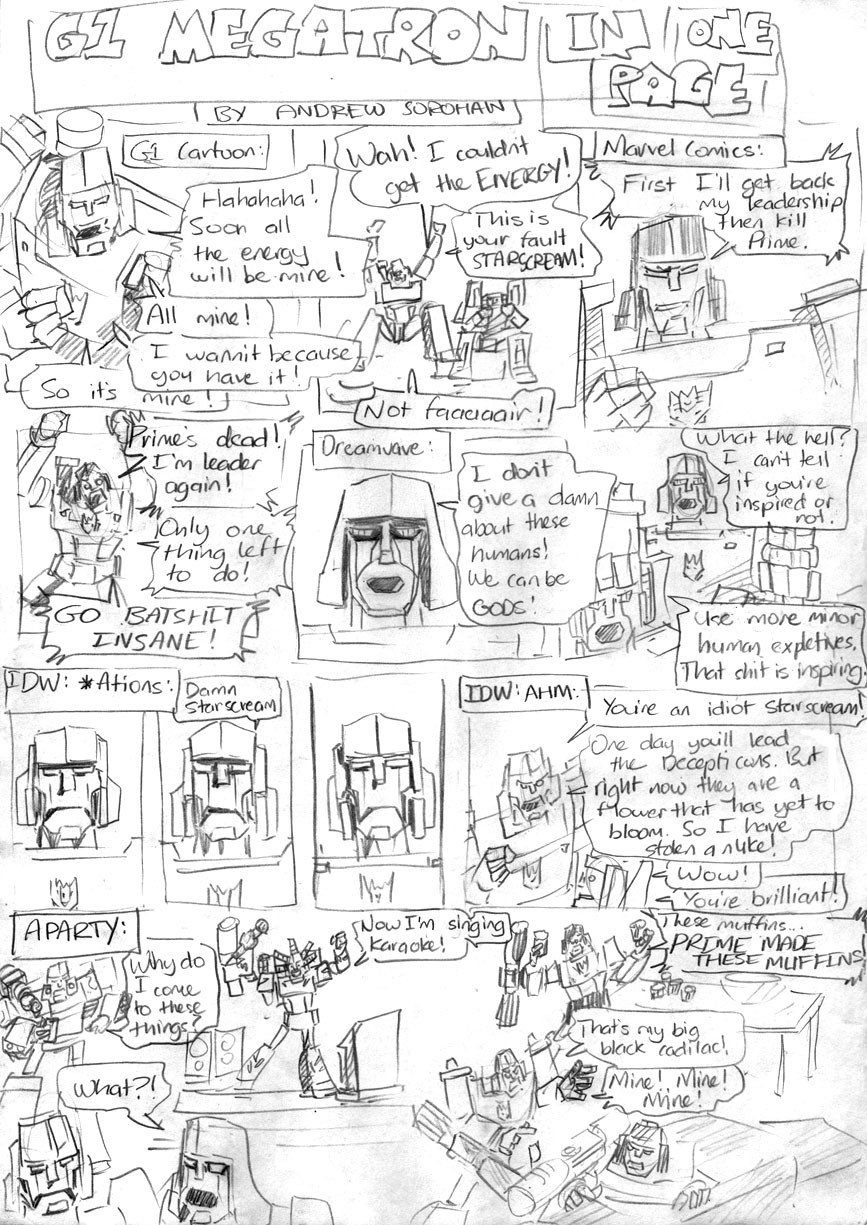 G1 MEGATRON IN ONE
PAGE
BY ANDREW SOROHAN
G1 Cartoon:
Hahahaha!
Soon all
the energy
will be mine!
All mine!
I wannit because
you have it!
So it's mine!
Wah! I couldn't
get the ENERGY!
This is
your fault
STARSCREAM!
Not faaaiaair!
Marvel Comics:
First I'll get back
my leadership
then kill
Prime.
Prime's dead!
I'm leader
again!
Only one
thing left
to do!
GO BATSHIT
INSANE!
Dreamwave:
I don't
give a damn
about these
humans!
We can be
GODS!
What the hell?
I can't tell
if you're
inspired or
not.
Use more minor
human expletives.
That shit is inspiring.
IDW: *Ations:
Damn
Starscream
IDW: AHM:
You're an idiot Starscream!
One day you'll lead
the Decepticons. But
right now they are a
flower that has yet to
bloom. So I have
stolen a nuke!
Wow!
You're brilliant!
A PARTY:
Why do
I come
to these
things?
Now I'm singing
Karaoke!
These muffins...
PRIME MADE
THESE MUFFINS
What?!
That's my big
black cadilac!
Mine! Mine!
Mine!